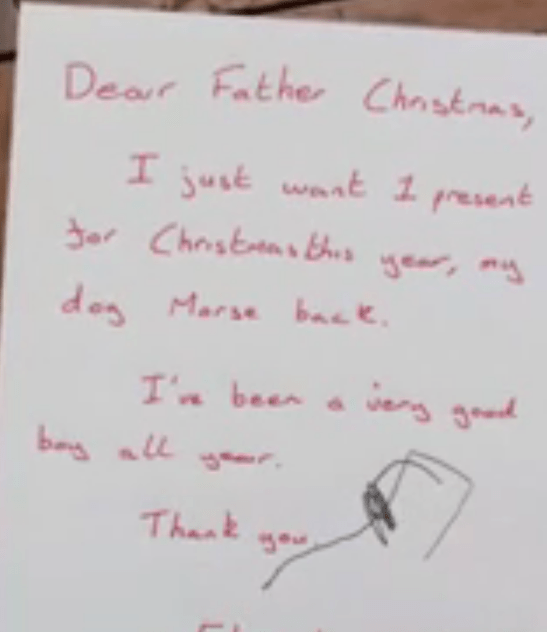 Dear Father Christmas,
I just want 1 present
for Christmas this year, my
dog Morse back.
I've been a very good
boy all year.
Thank you